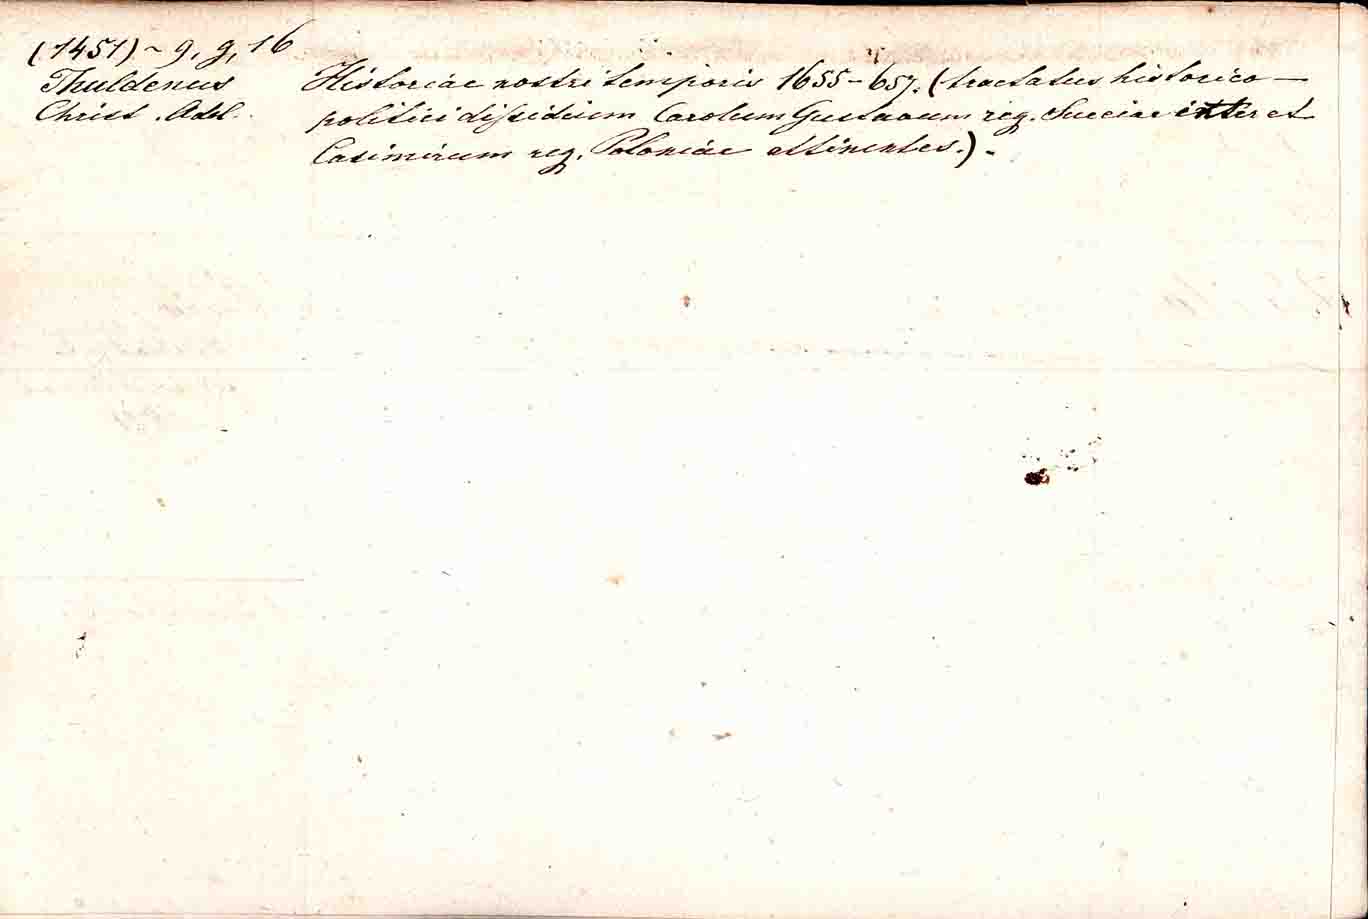 (1451) ~ g, g, 16
Thuldenus
Christ. Adol.
Historiae nostri temporis 1655-657. (tractatus historico —
politici dissidium Carolum Gustavum reg. Sueciae inter et
Casimirum reg. Poloniae attinentes.) .